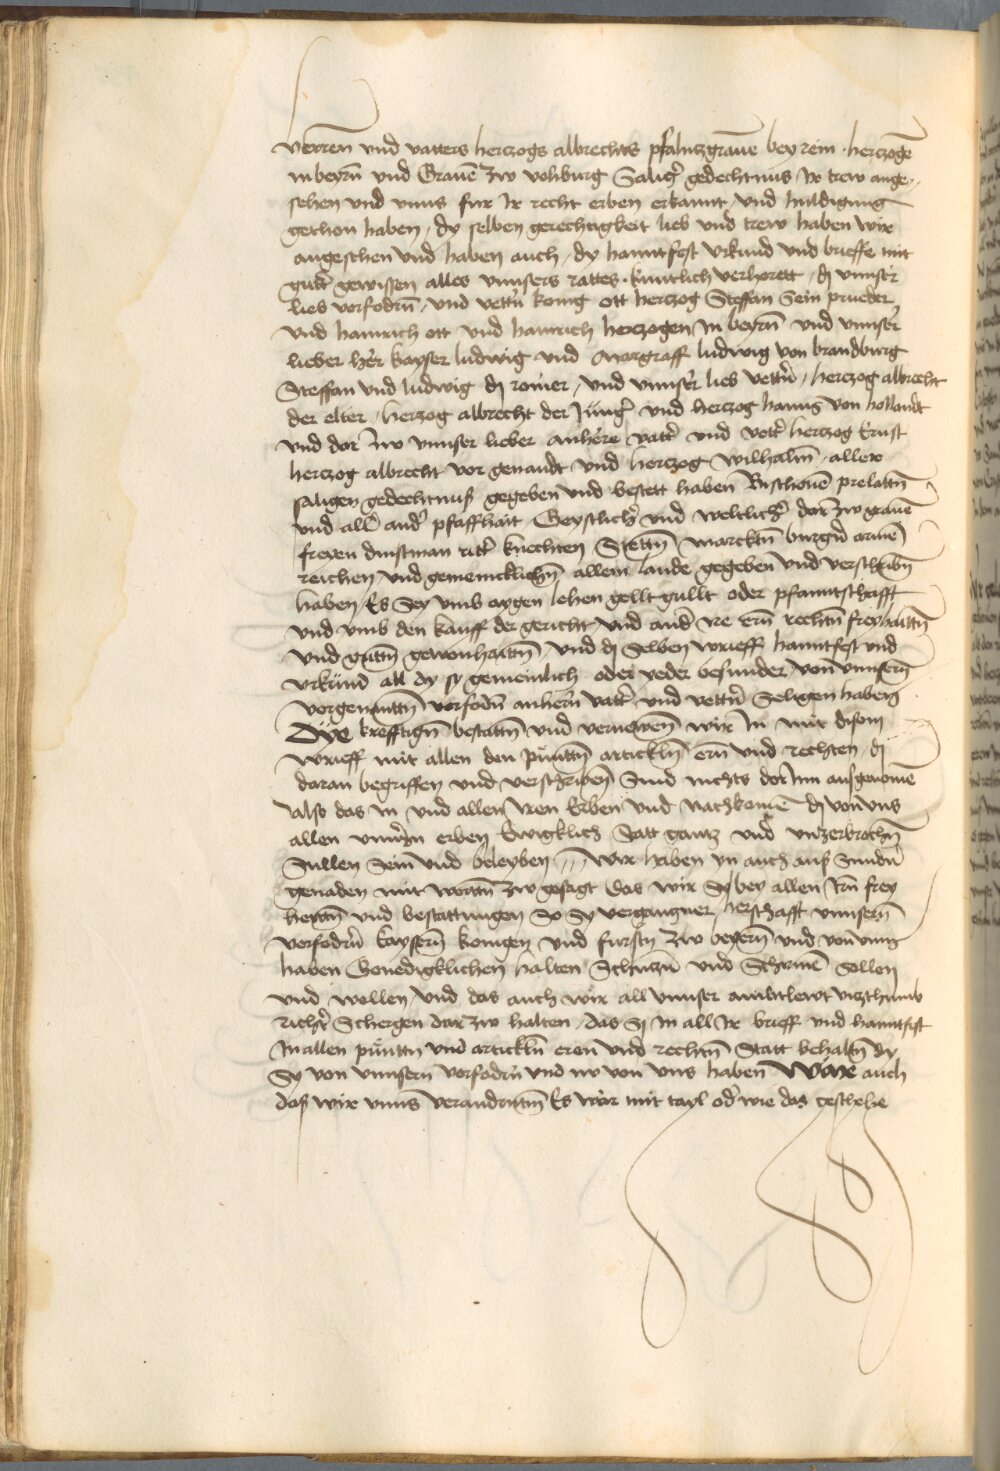 herren und vatters hertzogs albrechts pfaltzgrave bey rein hertzoge
in beyrn und Graven zw vohburg Saligr gedechtnus Ir trew ange=
sehen und unns fur Ir recht erben erkannt und huldigung
gethon haben dy selben gerechtigkeit lieb und trew haben wir
angesehen und haben auch dy hanntfest urkund und brieffe mit
gutr gewissen alles unnsers rattes kuntlich verhorett di unnser
lieb vorfodrn und vettrn konig ott hertzog Steffan Sein prueder
und hainrich ott und hainrich hertzogen In beyrn und unnser
lieber her kayser ludwig und Margraff ludwig von brandburg
Steffan und ludwig di romer und unnser lieb vettrn hertzog albrecht
der elter hertzog albrecht der Jungr und hertzog hanns von hollandt
und dar zw unnser lieber anhere vattr und vettr hertzog Ernst
hertzog albrecht vor genandt und hertzog wilhalm aller
saligen gedechtnuß gegeben und bestett haben Bischoven prelattn
und all andr pfaffhait Geystlichr und weltlichr dar zw graven
freyen dinstman rittr knechten Stettn marcktn burgrn armen
reichen und gemeincklichn allem lande gegeben und verschribn
haben Es Sey umb aygen lehen gellt gullt oder pfanntschafft
und umb den kauff der gericht und andr Ire ern rechtn freyhaittn
und guttn gewonhaittn und di selben brieff hanntfest und
urkund all dy sy gemeinlich oder yeder besunder von unnsern
vorgenanttn vorfodrn anhern vattr und vettrn Seligen haben
Dye krefftign bestattn und vernewen wir In mit disem
brieff mit allen den punttn artickln ern und rechten di
daran begriffen und verschriben Sind nichts dar Inn ausgenomen
also das In und allen Iren Erben und Nachkomen di von uns
allen unnsrn erben Ewigklich Statt gantz und unzerbrochn
Sullen Sein und beleyben wir haben yn auch auß Sundrn
genaden mit worttn zw gesagt das wir Sy bey allen Irn frey
heittn und bestattungen So Sy vergangner herschafft unnsern
vorfodrn kaysern konigen und fursten zw beyern und von unns
haben Genedigklichen halten Schutzn und Schirmen Sollen
und wollen und das auch wir all unnser ambtlewt vitzthumb
richtr Schergen dar zw halten das Si In all Ir brieff und hanntfest
In allen punttn und artickln eren und rechtn Statt behaltn dy
Sy von unnsern vorfodrn und nw von uns haben Wäre auch
das wir unns verandrttn Es wär mit tayl odr wie das geschehe